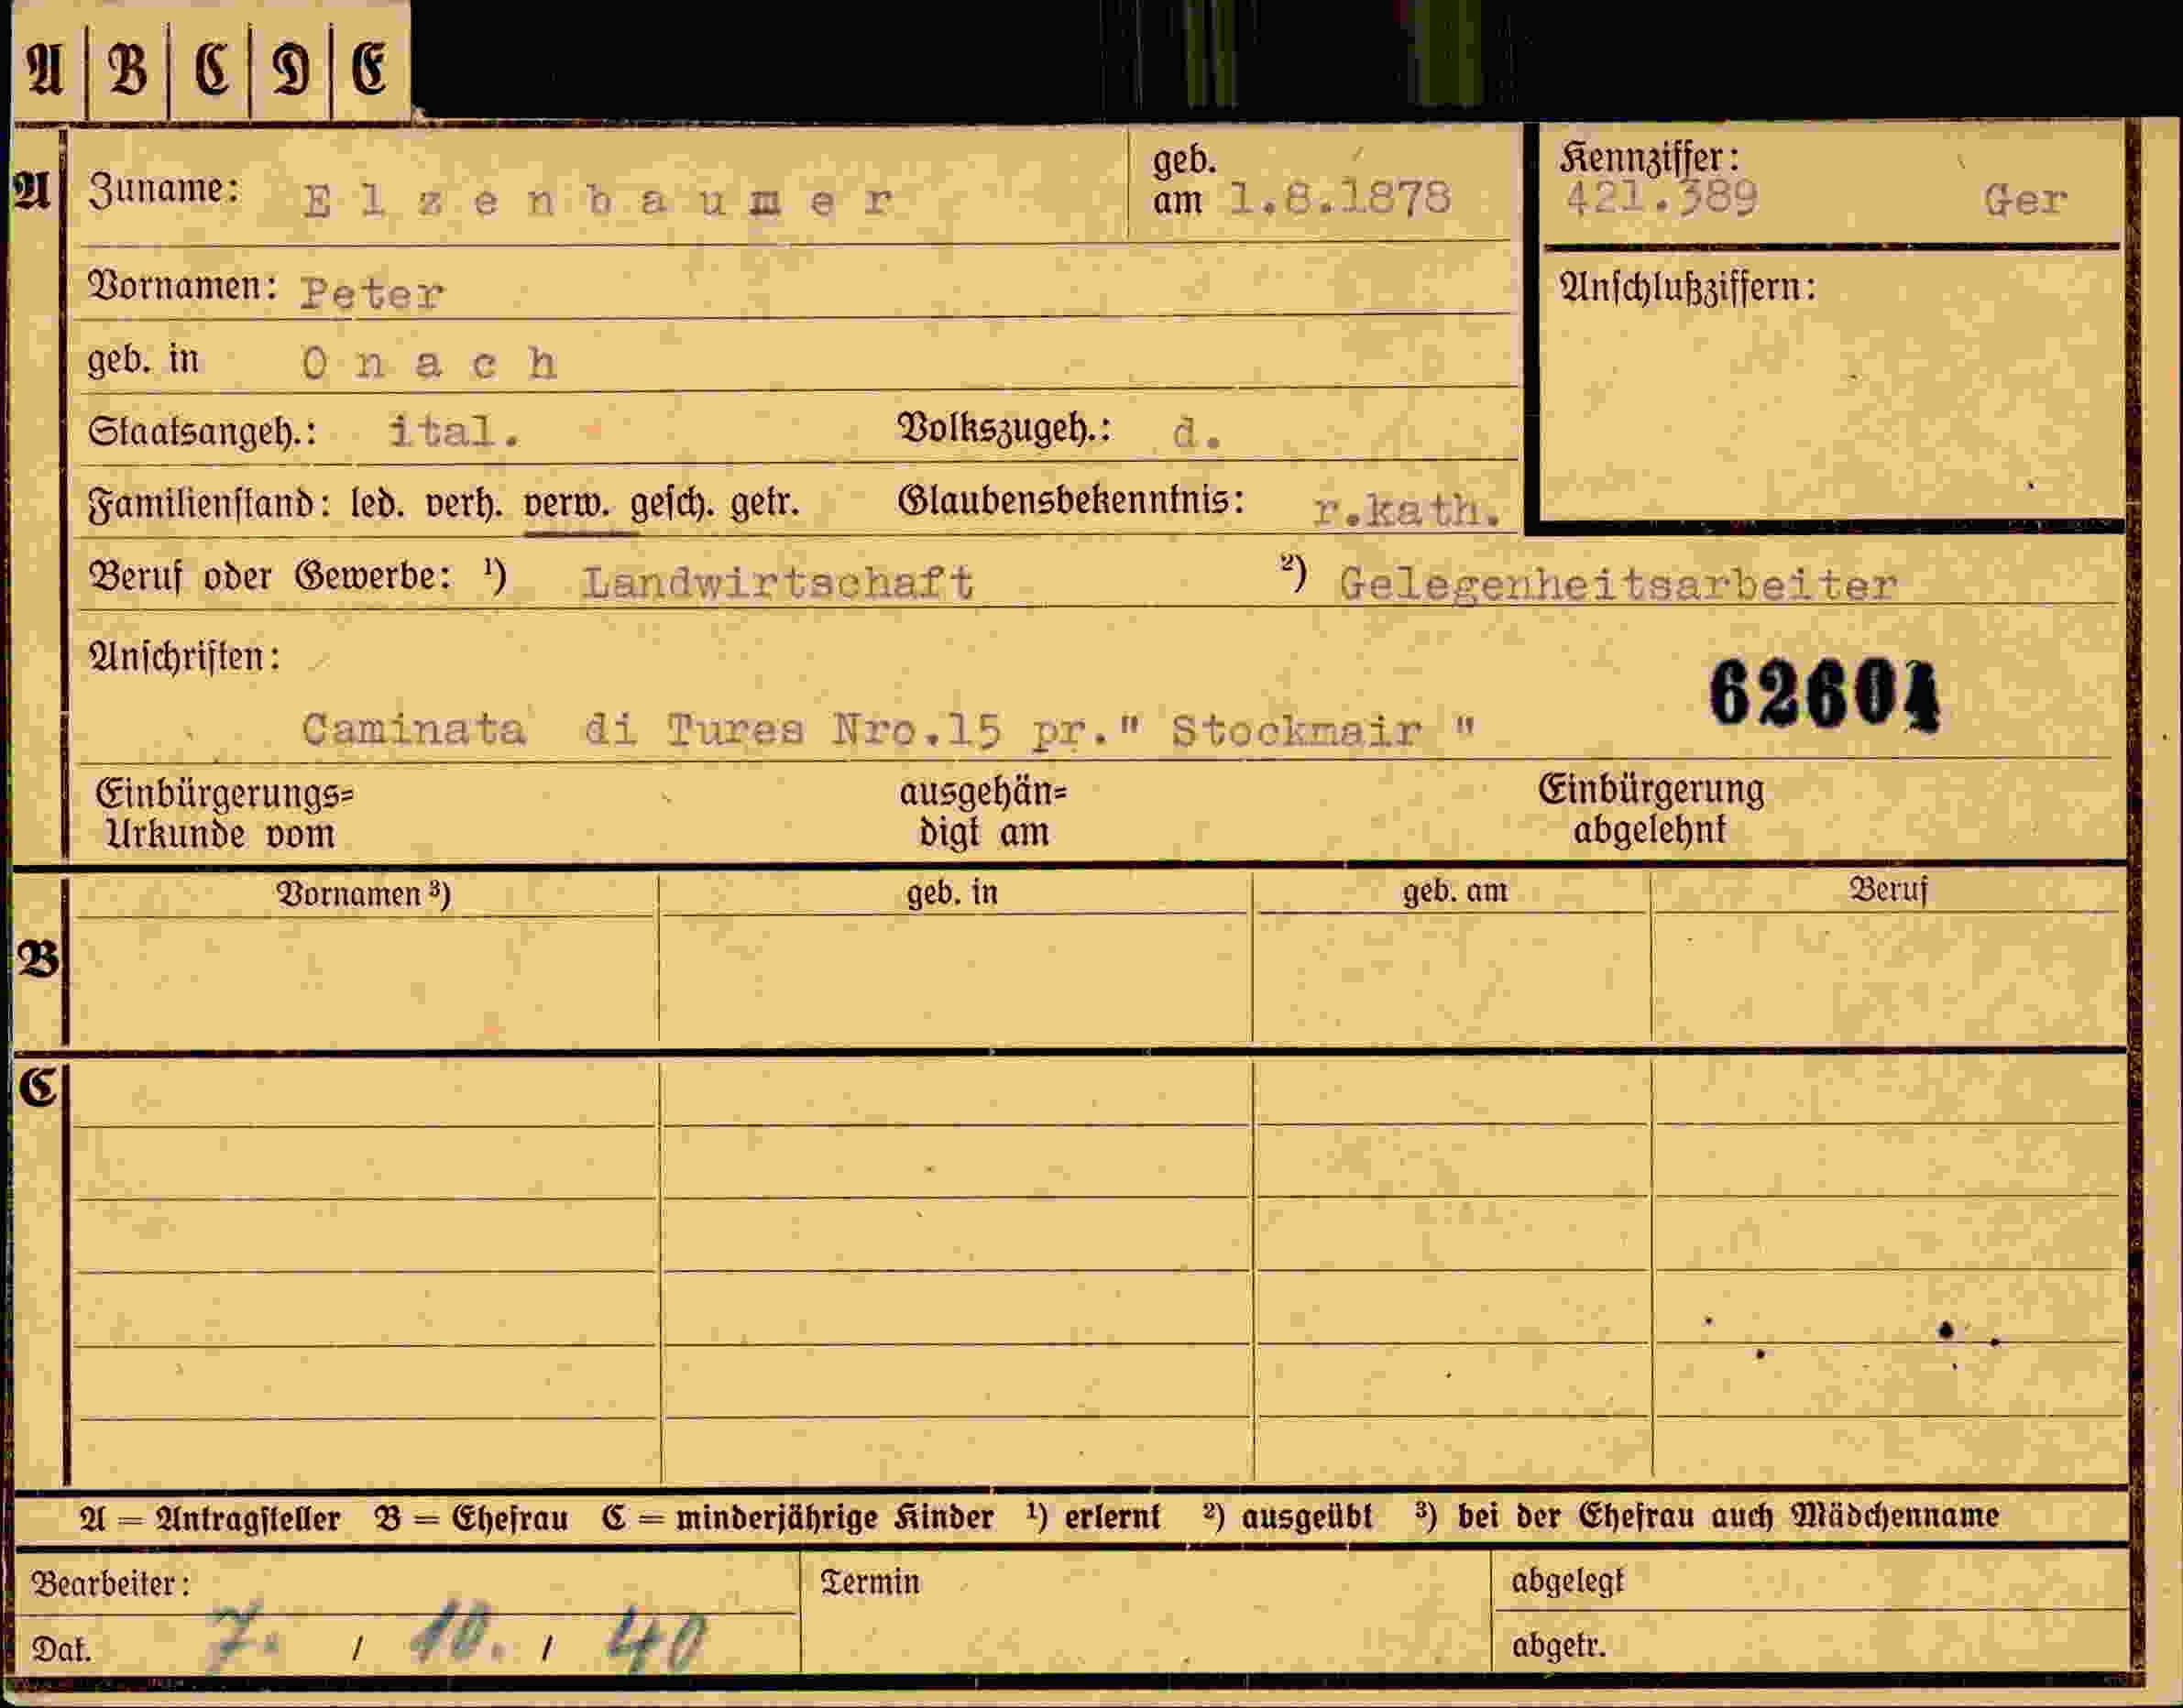 A B C D E
A Zuname: Elzenbaumer geb. am 1.8.1878 Kennziffer: 421.389 Ger
Vornamen: Peter Anschlußziffern:
geb. in Onach
Staatsangeh.: ital. Volkszugeh.: d.
Familienstand: led. verh. verw. gesch. getr. Glaubensbekenntnis: r.kath.
Beruf oder Gewerbe: ¹) Landwirtschaft ²) Gelegenheitsarbeiter
Anschriften:
62604
Caminata di Tures Nro.15 pr." Stockmair "
Einbürgerungs= ausgehän= Einbürgerung
Urkunde vom digt am abgelehnt
Vornamen ³) geb. in geb. am Beruf
B
C
A = Antragsteller B = Ehefrau C = minderjährige Kinder ¹) erlernt ²) ausgeübt ³) bei der Ehefrau auch Mädchenname
Bearbeiter: Termin abgelegt
Dat. 7. / 10. / 40 abgetr.